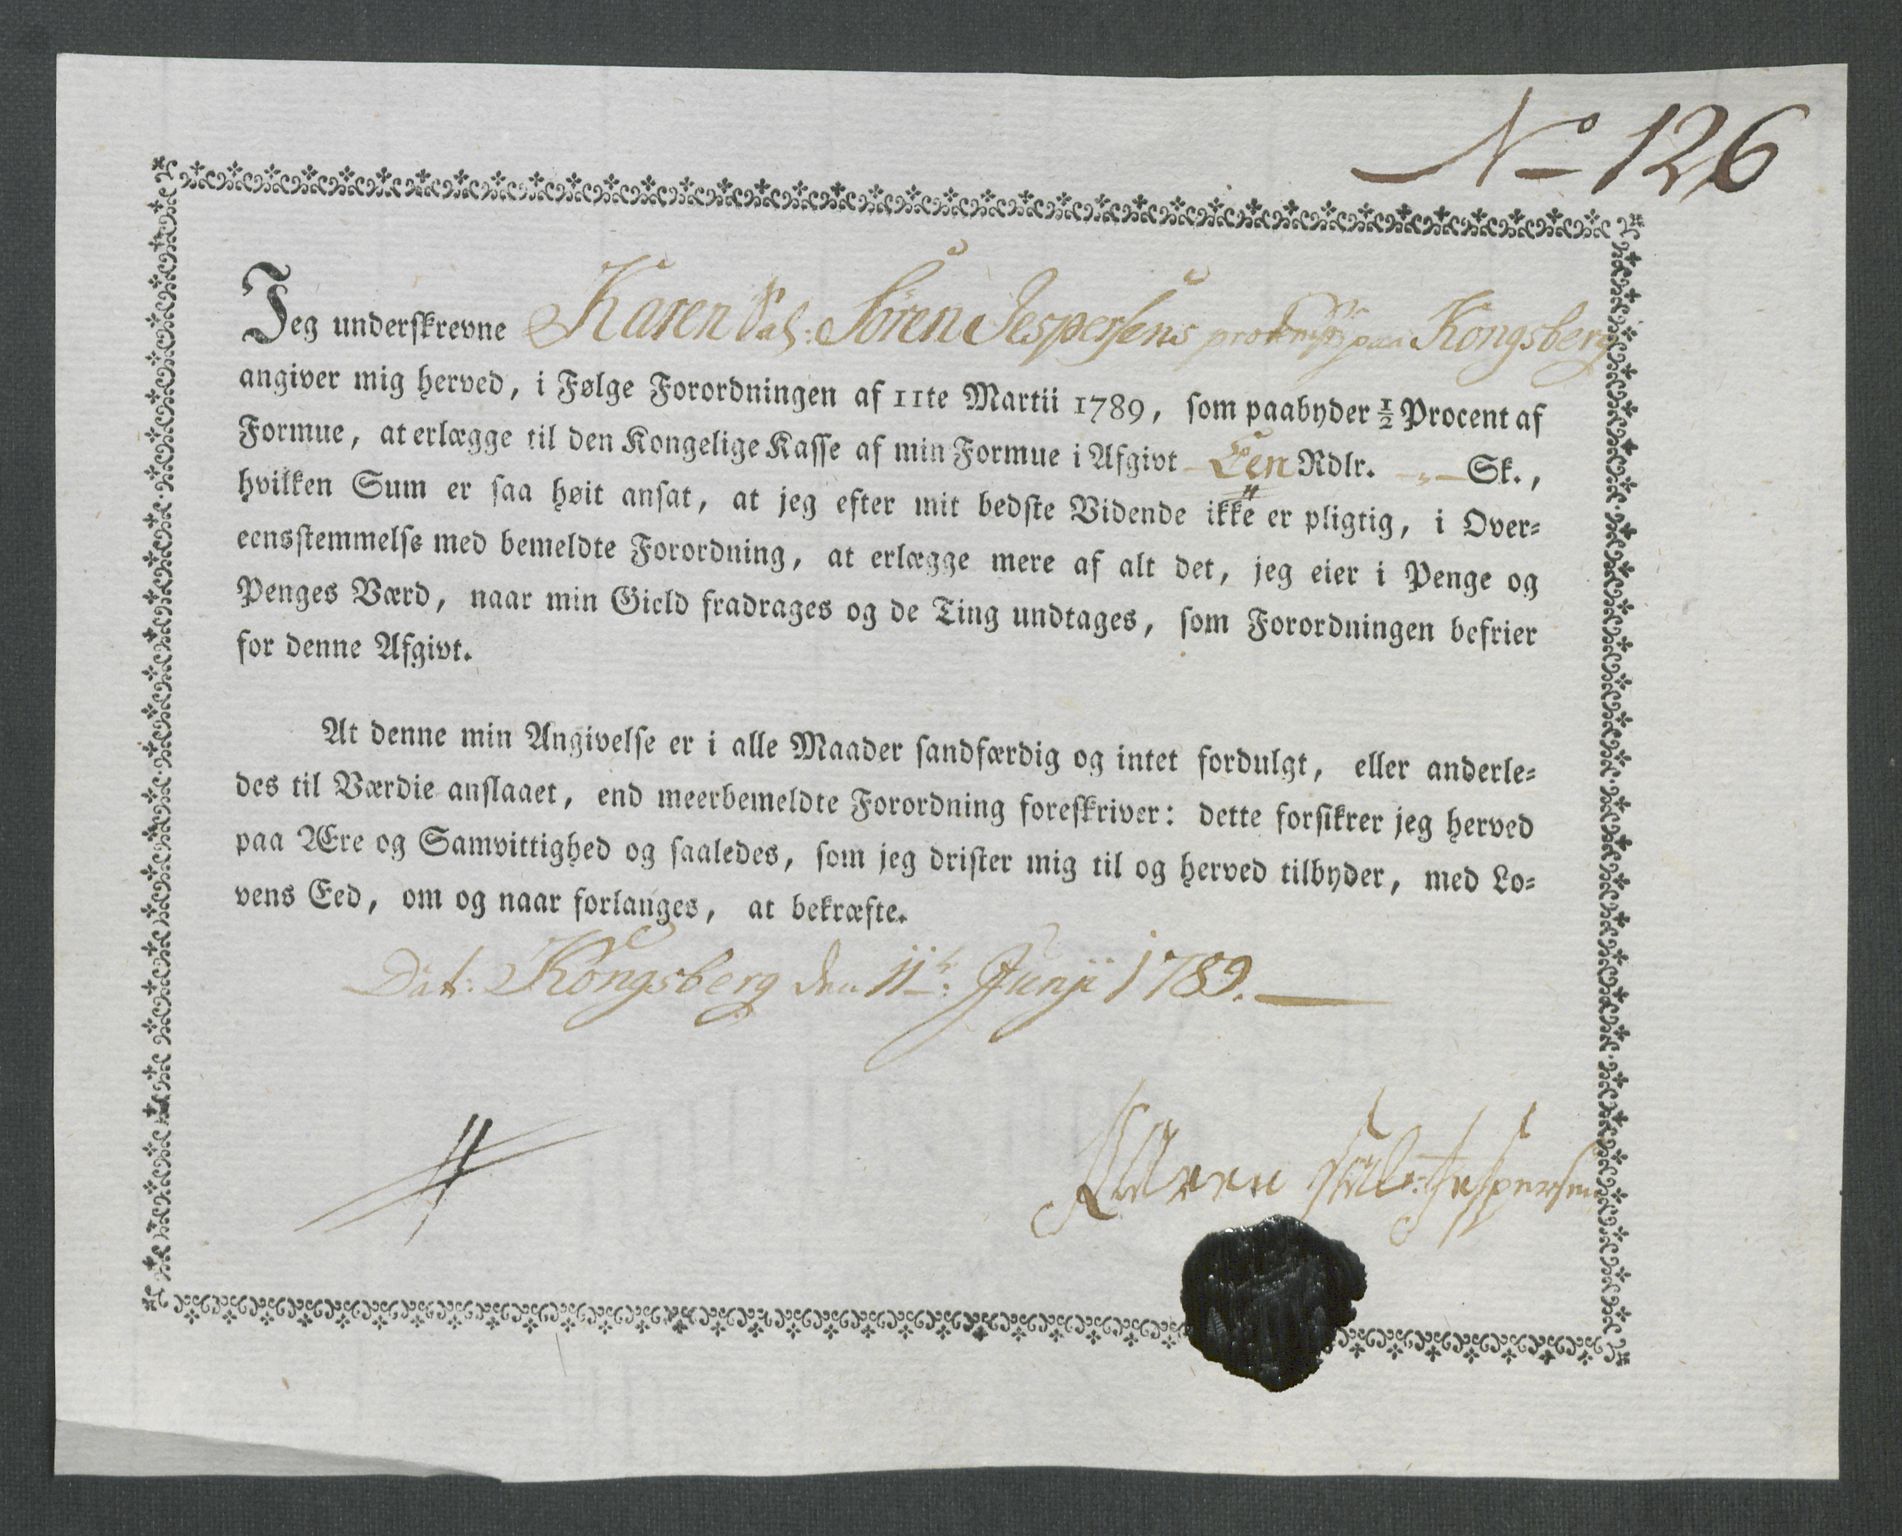 No 126
Jeg underskrevne Karen Sal: Sören Jespersens paa Kongsberg
angiver mig herved, i Følge Forordningen af 11te Martii 1789, som paabyder ½ Procent af
Formue, at erlægge til den Kongelige Kasse af min Formue i Afgivt Een Rdlr. — „ — Sk.,
hvilken Sum er saa høit ansat, at jeg efter mit bedste Vidende ikke er pligtig, i Over=
eensstemmelse med bemeldte Forordning, at erlægge mere af alt det, jeg eier i Penge og
Penges Værd, naar min Gield fradrages og de Ting undtages, som Forordningen befrier
for denne Afgivt.
At denne min Angivelse er i alle Maader sandfærdig og intet fordulgt, eller anderle=
des til Værdie anslaaet, end meerbemeldte Forordning foreskriver: dette forsikrer jeg herved
paa Ære og Samvittighed og saaledes, som jeg drister mig til og herved tilbyder, med Lo=
vens Eed, om og naar forlanges, at bekræfte.
Dat: Kongsberg den 11te Junÿ 1789.
Karen Sal: Jespersens